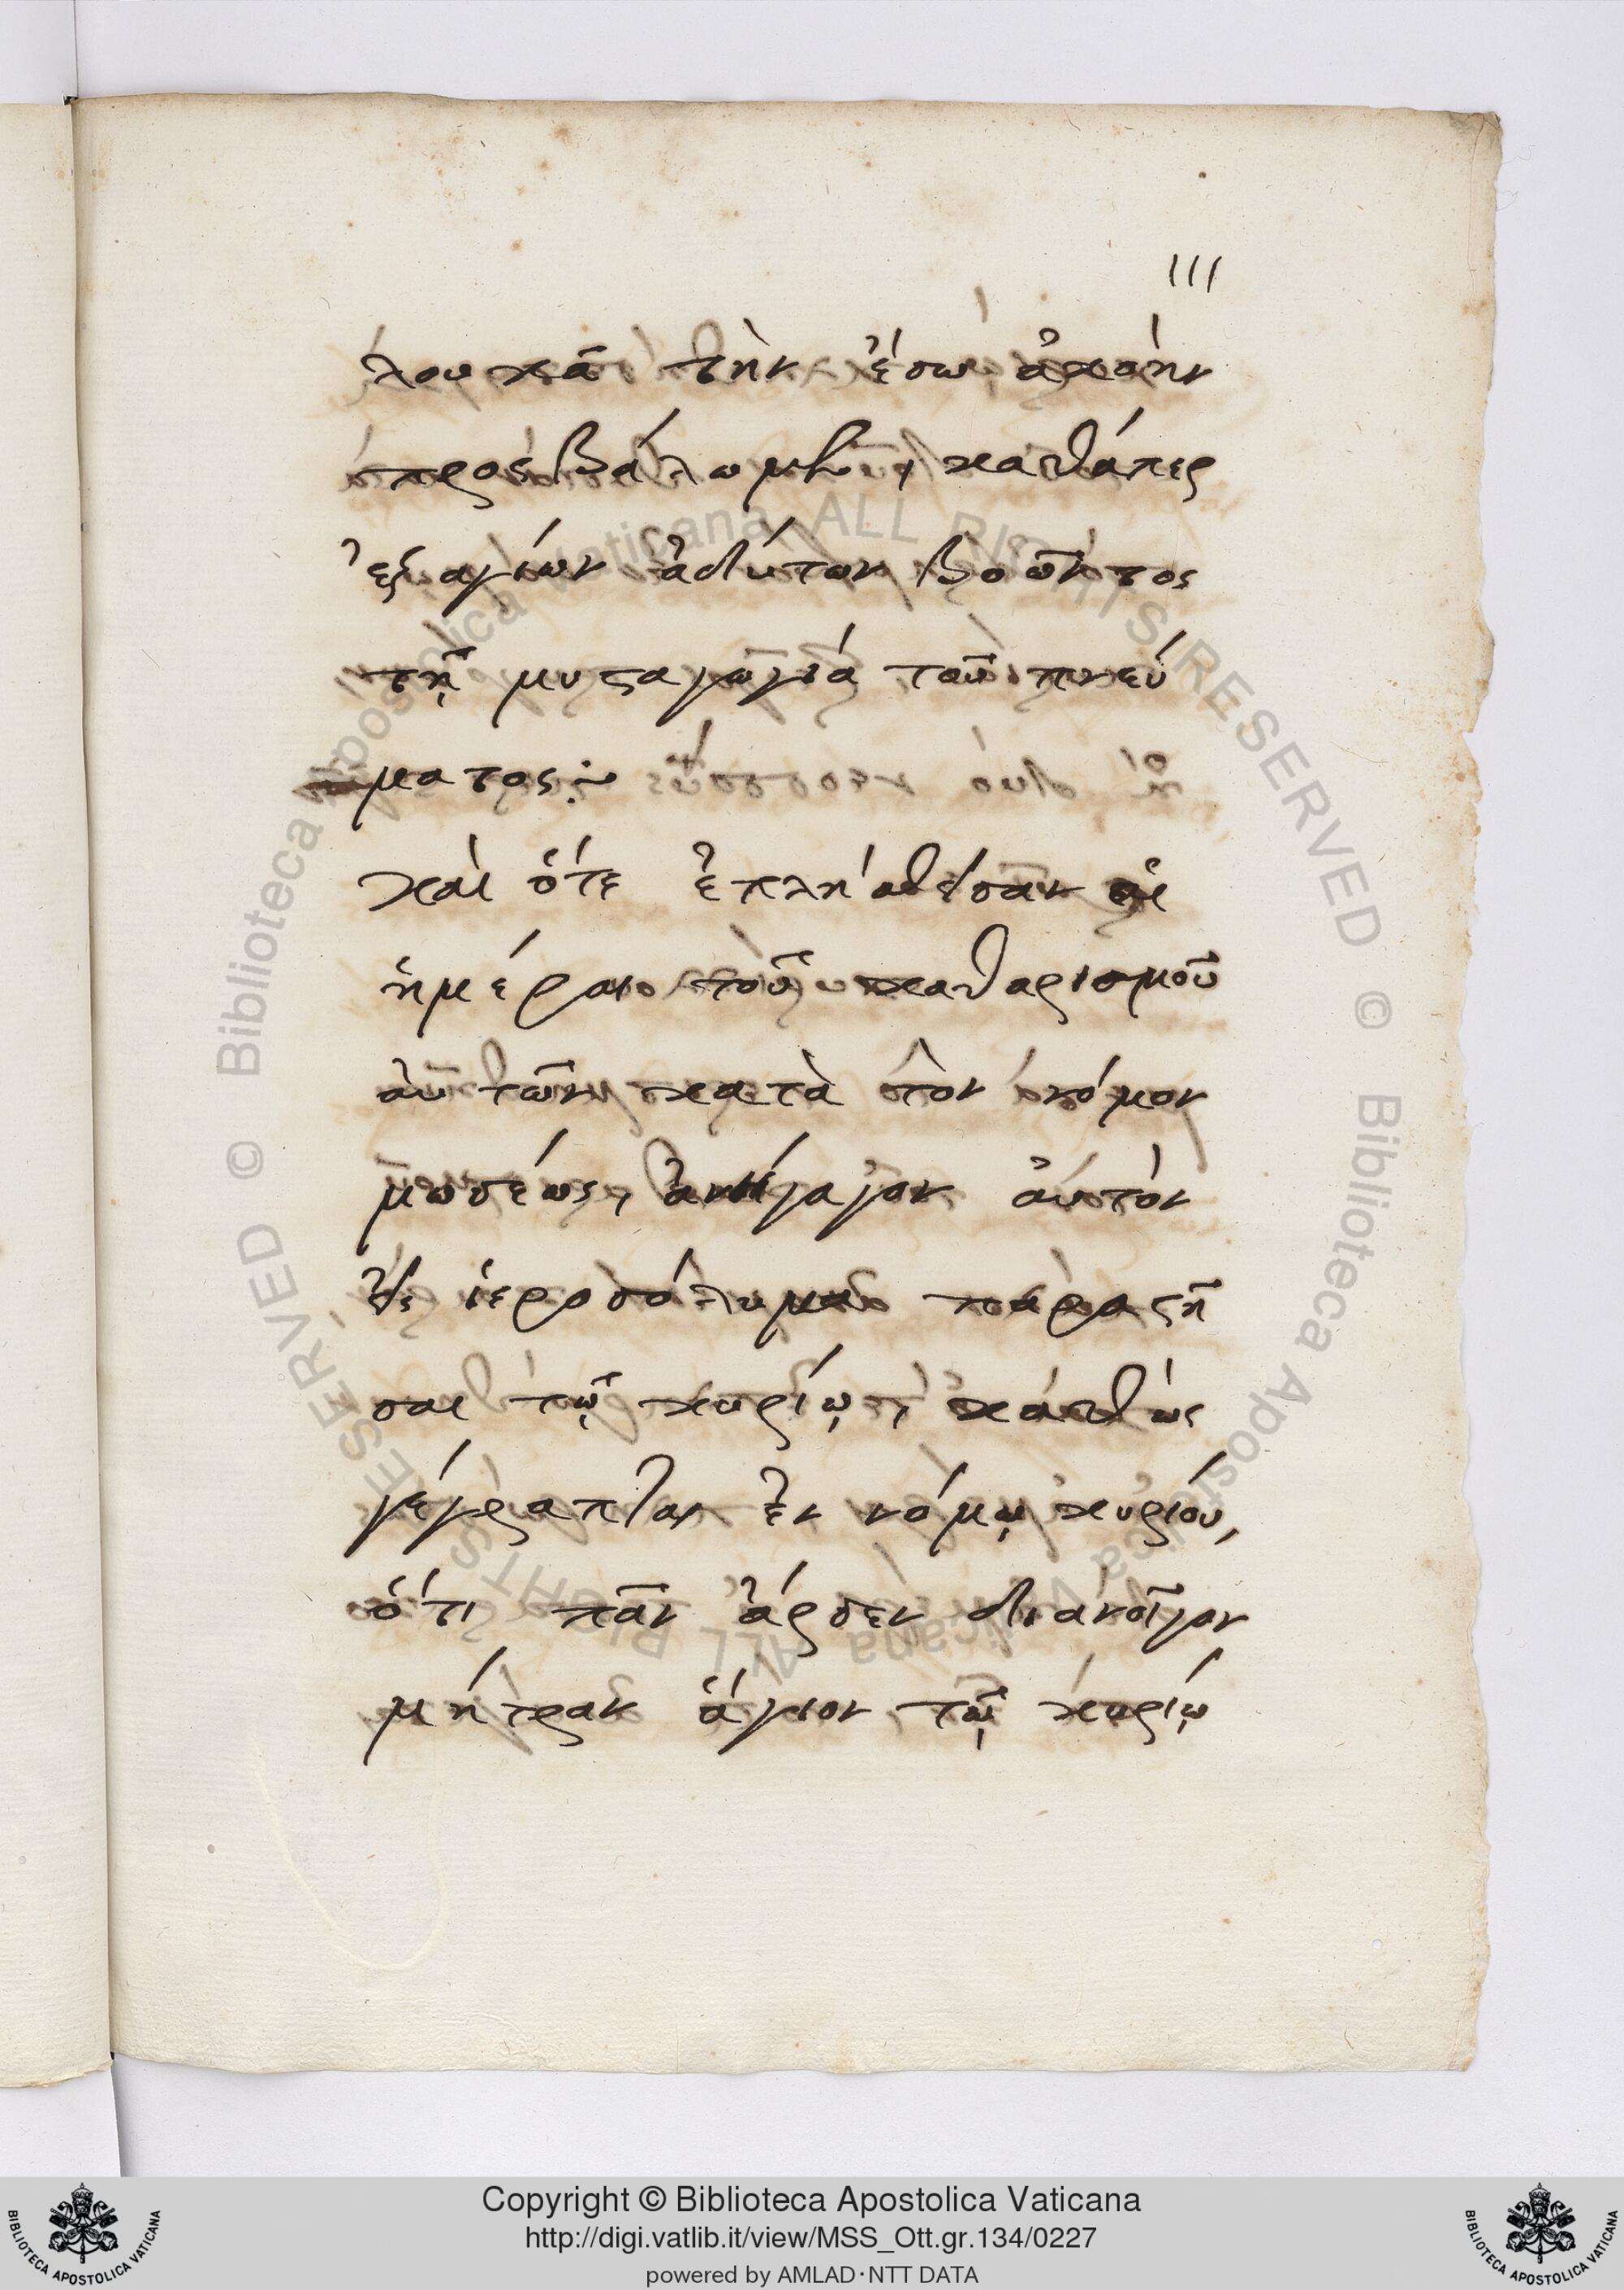 111
λου κᾶ τὴν ἔσω ἀκοὴν
προςβάλωμεν, καθάπερ
ἐξ αγίων ἀδύτων βοῶντος
τῇ μυσταγωγία τοῦ πνεύ
ματος:~
καὶ ὅτε ἐπλήσθησαν αἱ
ἡμέραι τοῦ καθαρισμοῦ
ἀυτῶν κατὰ τὸν νόμον
μωσέως, ἀνήγαγον ἀυτὸν
εἰς ἱεροσόλυμα παραστῆ
σαι τῷ κυρίῳ, καθὼς
γέγραπται ἐν νόμῳ κυρίου,
ὅτι πᾶν ἄρσεν διανοῖγον
μήτραν ἅγιον τῷ κυρίῳ
© Biblioteca Apostolica Vaticana ALL RIGHTS RESERVED © Biblioteca Apostolica Vaticana ALL RIGHTS RESERVED
Copyright © Biblioteca Apostolica Vaticana
http://digi.vatlib.it/view/MSS_Ott.gr.134/0227
powered by AMLAD·NTT DATA
BIBLIOTECA APOSTOLICA VATICANA
BIBLIOTECA APOSTOLICA VATICANA